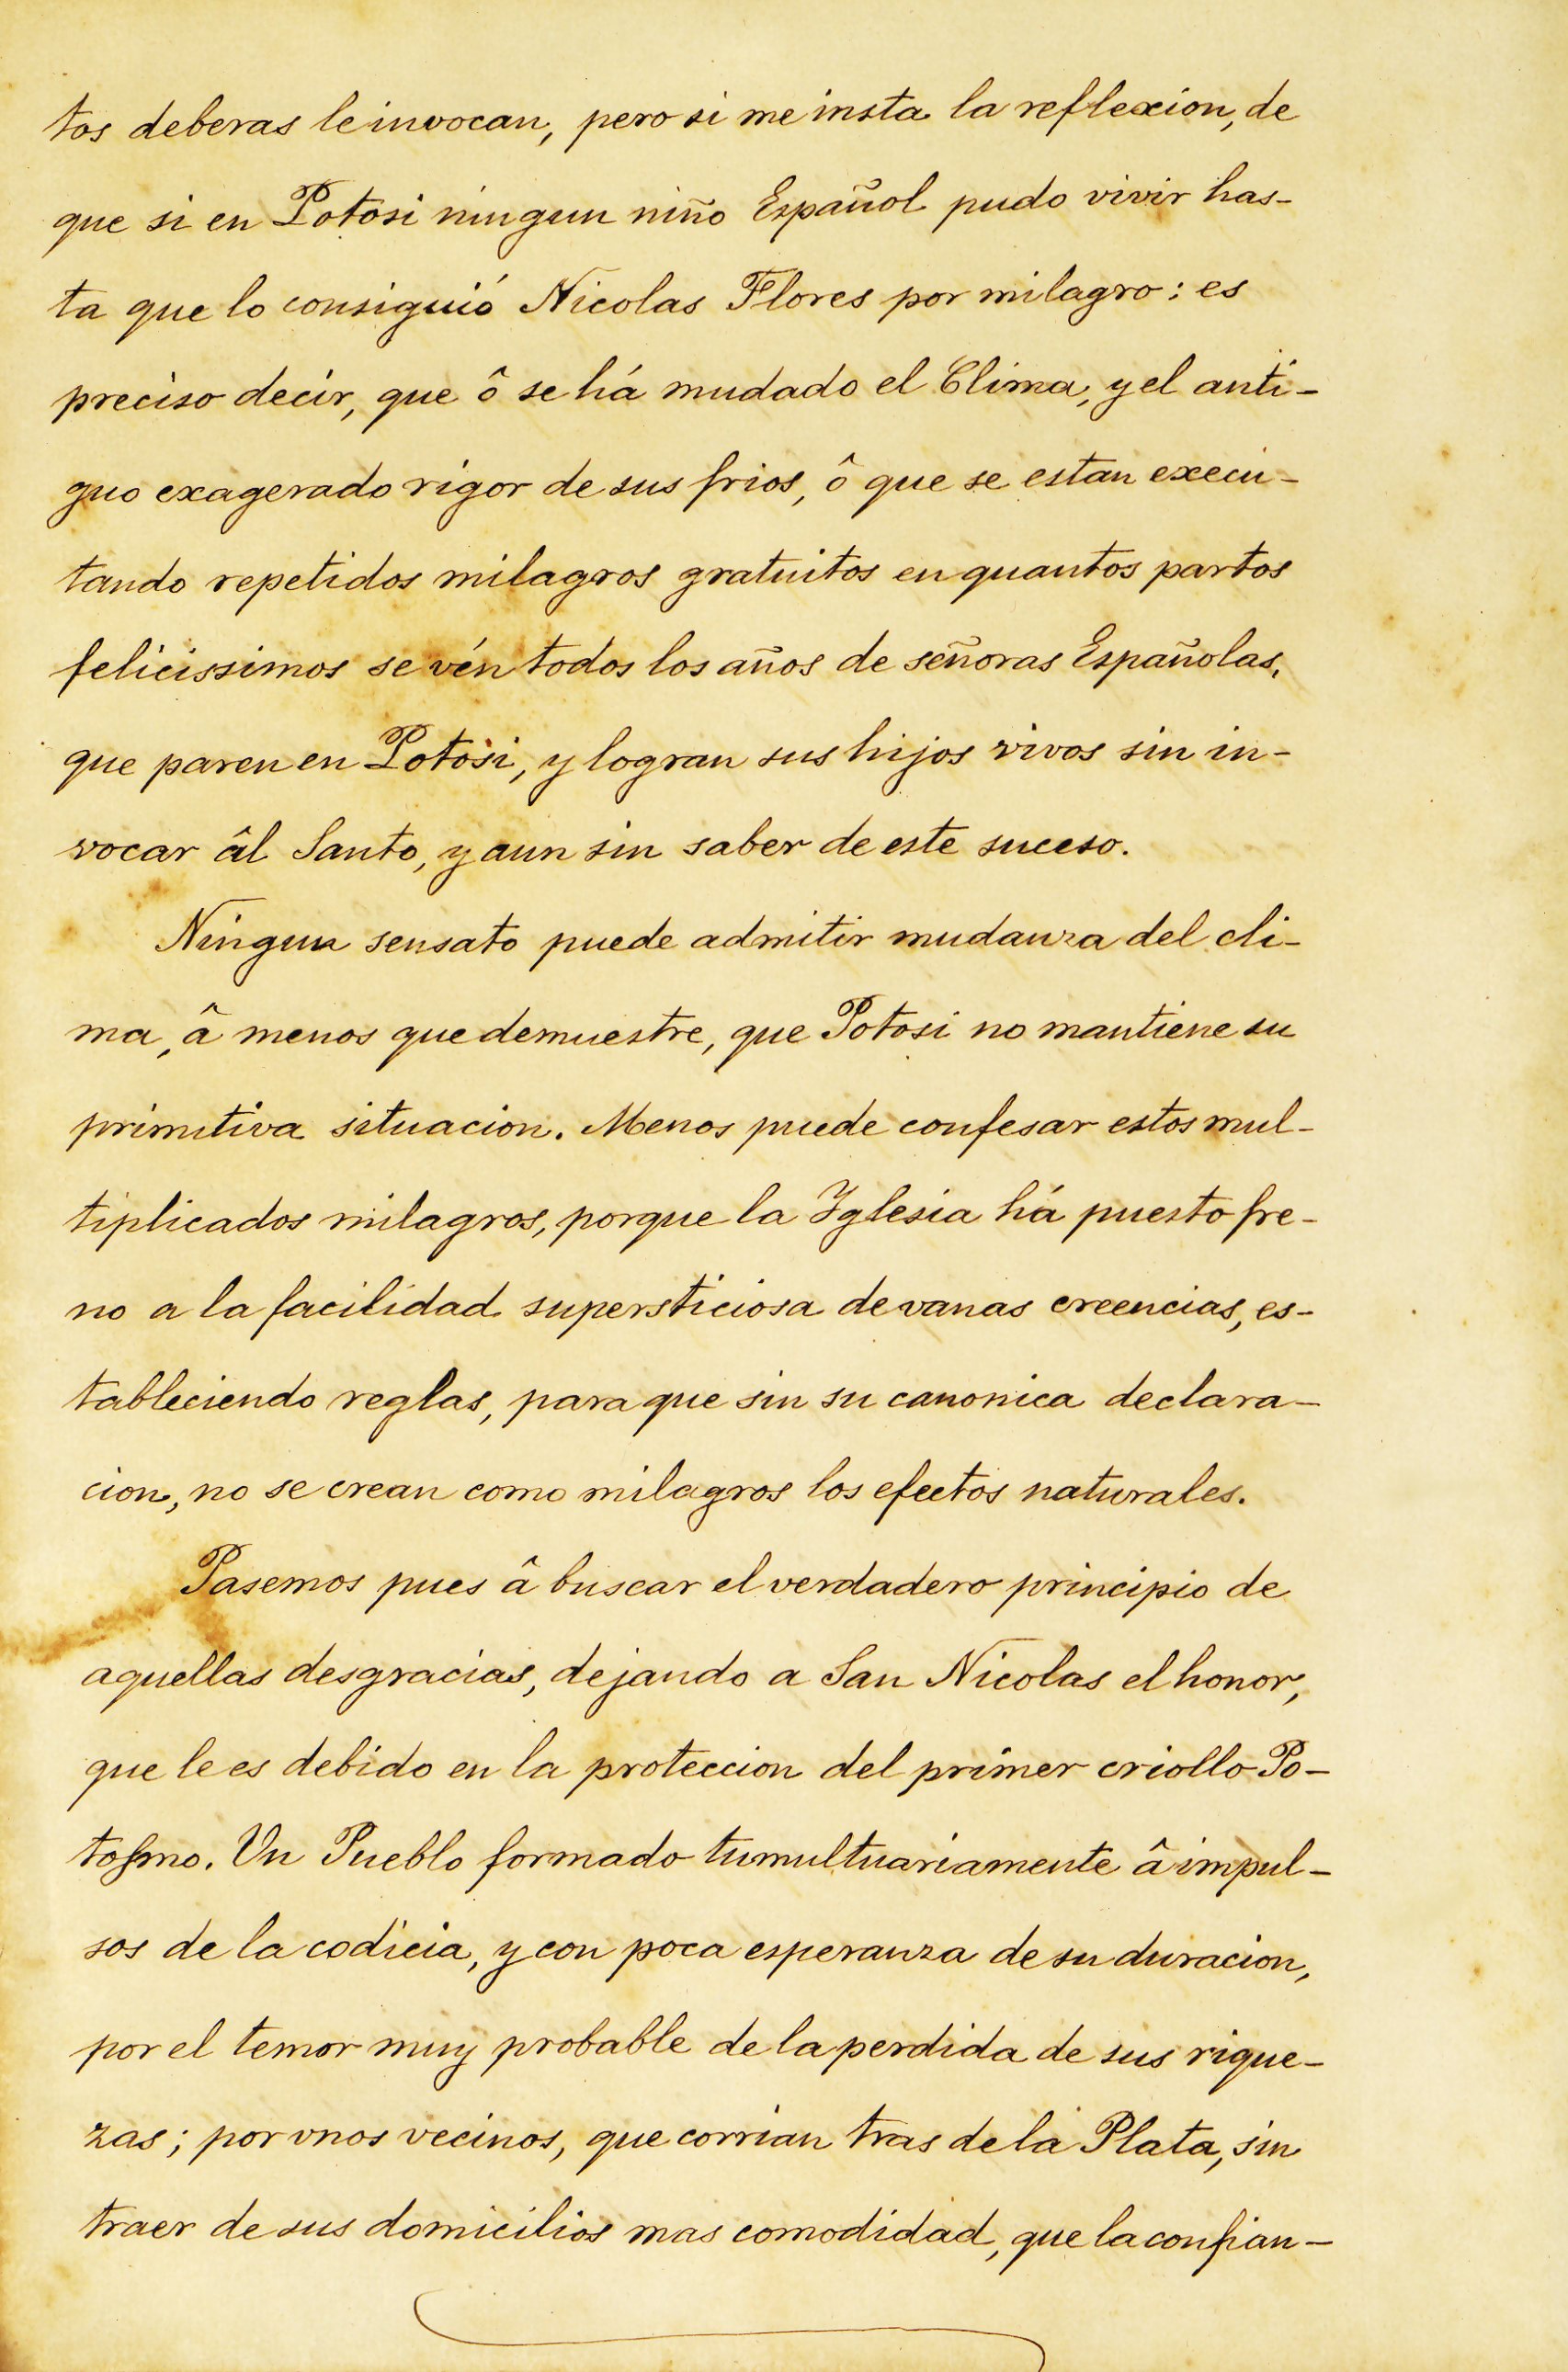 tos deberas le invocan, pero si me insta la reflexion, de
que si en Potosi ningun niño Español pudo vivir has-
ta que lo consiguió Nicolas Flores por milagro: es
preciso decir, que ô se há mudado el Clima, y el anti-
guo exagerado rigor de sus frios, ô que se estan execu-
tando repetidos milagros gratuitos en quantos partos
felicissimos se vén todos los años de señoras Españolas,
que paren en Potosi, y logran sus hijos vivos sin in-
vocar âl Santo, y aun sin saber de este suceso.
Ningun sensato puede admitir mudanza del cli-
ma, â menos que demuestre, que Potosi no mantiene su
primitiva situacion. Menos puede confesar estos mul-
tiplicados milagros, porque la Yglesia há puesto fre-
no a la facilidad supersticiosa de vanas creencias, es-
tableciendo reglas, para que sin su canonica declara-
cion, no se crean como milagros los efectos naturales.
Pasemos pues â buscar el verdadero principio de
aquellas desgracias, dejando a San Nicolas el honor,
que le es debido en la proteccion del primer criollo Po-
tosino. Un Pueblo formado tumultuariamente â impul-
sos de la codicia, y con poca esperanza de su duracion,
por el temor muy probable de la perdida de sus rique-
zas; por vnos vecinos, que corrian tras de la Plata, sin
traer de sus domicilios mas comodidad, que la confian-